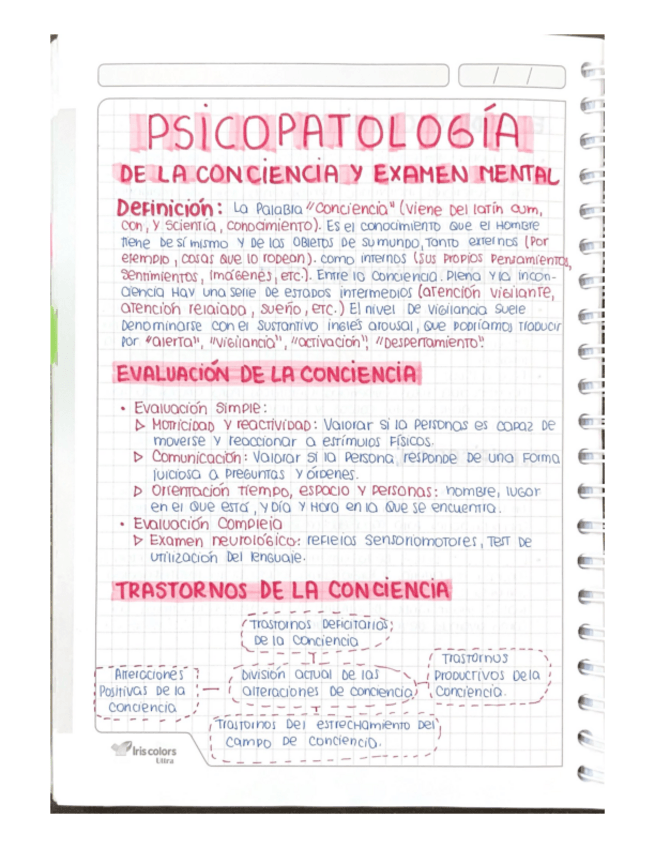 / /
PSICOPATOLOGÍA
DE LA CONCIENCIA Y EXAMEN MENTAL
Definición: La Palabra "Conciencia" (viene Del latín cum,
con, y scientia, conocimiento). Es el conocimiento que el Hombre
tiene de sí mismo y de los objetos de su mundo, tanto externos (Por
ejemplo, cosas que lo rodean). como internos (sus propios Pensamientos,
sentimientos, Imágenes, etc.). Entre la conciencia Plena y la incon-
ciencia Hay una serie De estados intermedios (atención vigilante,
atención relajada, sueño, etc.) El nivel De vigilancia suele
Denominarse con el sustantivo inglés arousal, que podríamos traducir
Por "alerta", "vigilancia", "activación", "Despertamiento".
EVALUACIÓN DE LA CONCIENCIA
• Evaluación simple:
▷ Motricidad y reactividad: Valorar si la Personas es capaz De
moverse y reaccionar a estímulos físicos.
▷ Comunicación: Valorar si la Persona responde De una forma
juiciosa a Preguntas y órdenes.
▷ Orientación tiempo, espacio y Personas: nombre, lugar
en el que está, y Día y Hora en la que se encuentra.
• Evaluación Compleja
▷ Examen neurológico: reflejos sensoriomotores, Test De
utilización Del lenguaje.
TRASTORNOS DE LA CONCIENCIA
Trastornos Deficitarios
De la conciencia
Trastornos
Productivos De la
Conciencia.
Alteraciones
Positivas De la
conciencia
División actual De las
alteraciones De conciencia
Trastornos Del estrechamiento Del
campo De conciencia.
Iris colors
Ultra